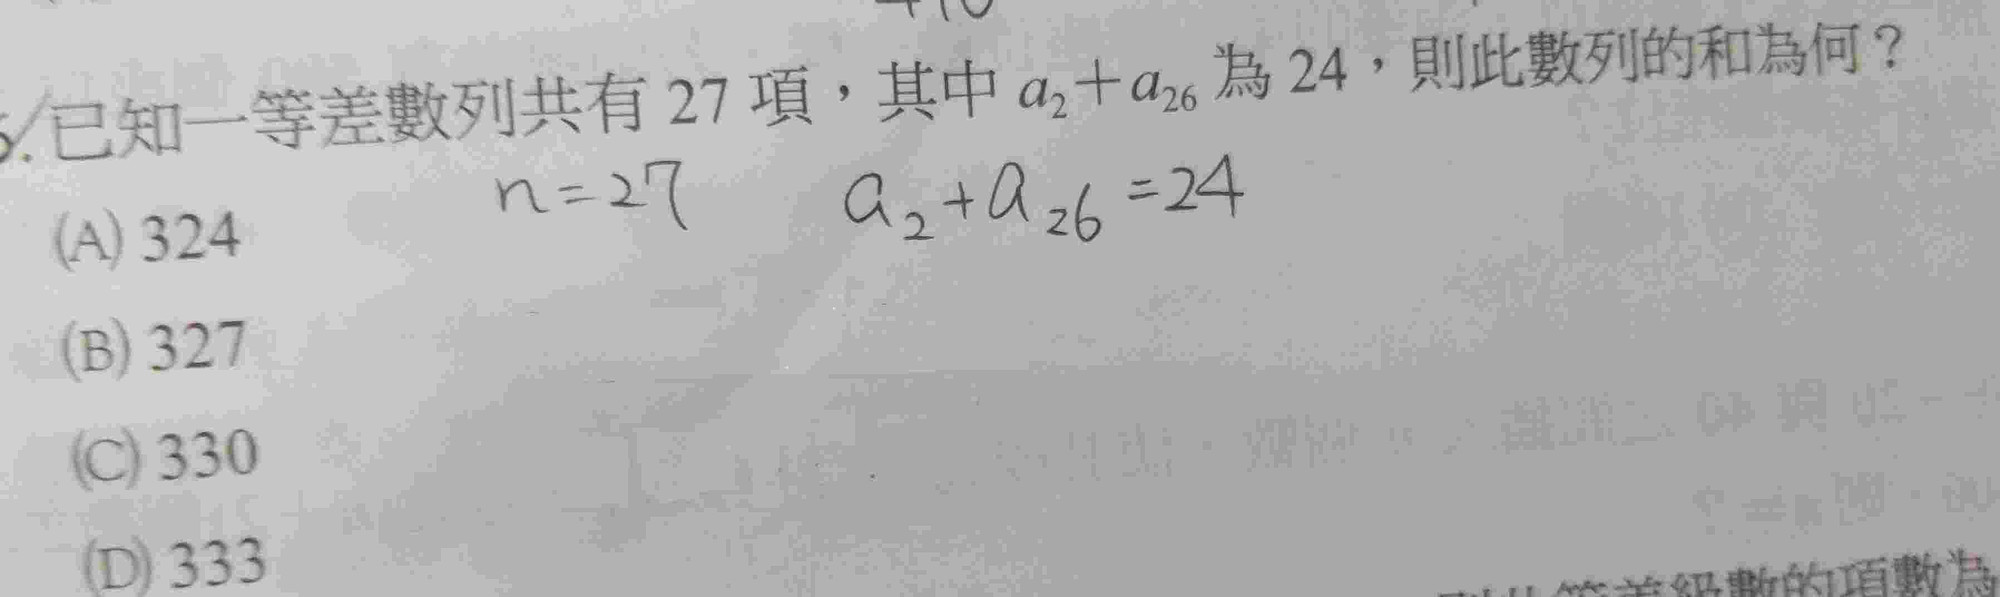 已知一等差數列共有 27 項，其中 a₂＋a₂₆ 為 24，則此數列的和為何？
n=27 a₂+a₂₆=24
(A) 324
(B) 327
(C) 330
(D) 333
等差級數的項數為